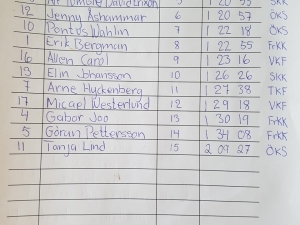 12 Jenny Åshammar 6 1 20 57 ÖKS
10 Pontus Wahlin 7 1 22 18 ÖKS
1 Erik Bergman 8 1 22 55 FrKK
16 Allen Carol 9 1 23 16 VKF
13 Elin Johansson 10 1 26 26 SKK
7 Arne Hyckenberg 11 1 27 38 TKF
17 Micael Westerlund 12 1 29 18 VKF
4 Gabor Joo 13 1 30 19 FrKK
5 Göran Pettersson 14 1 34 08 FrKK
11 Tanja Lind 15 2 09 27 ÖKS